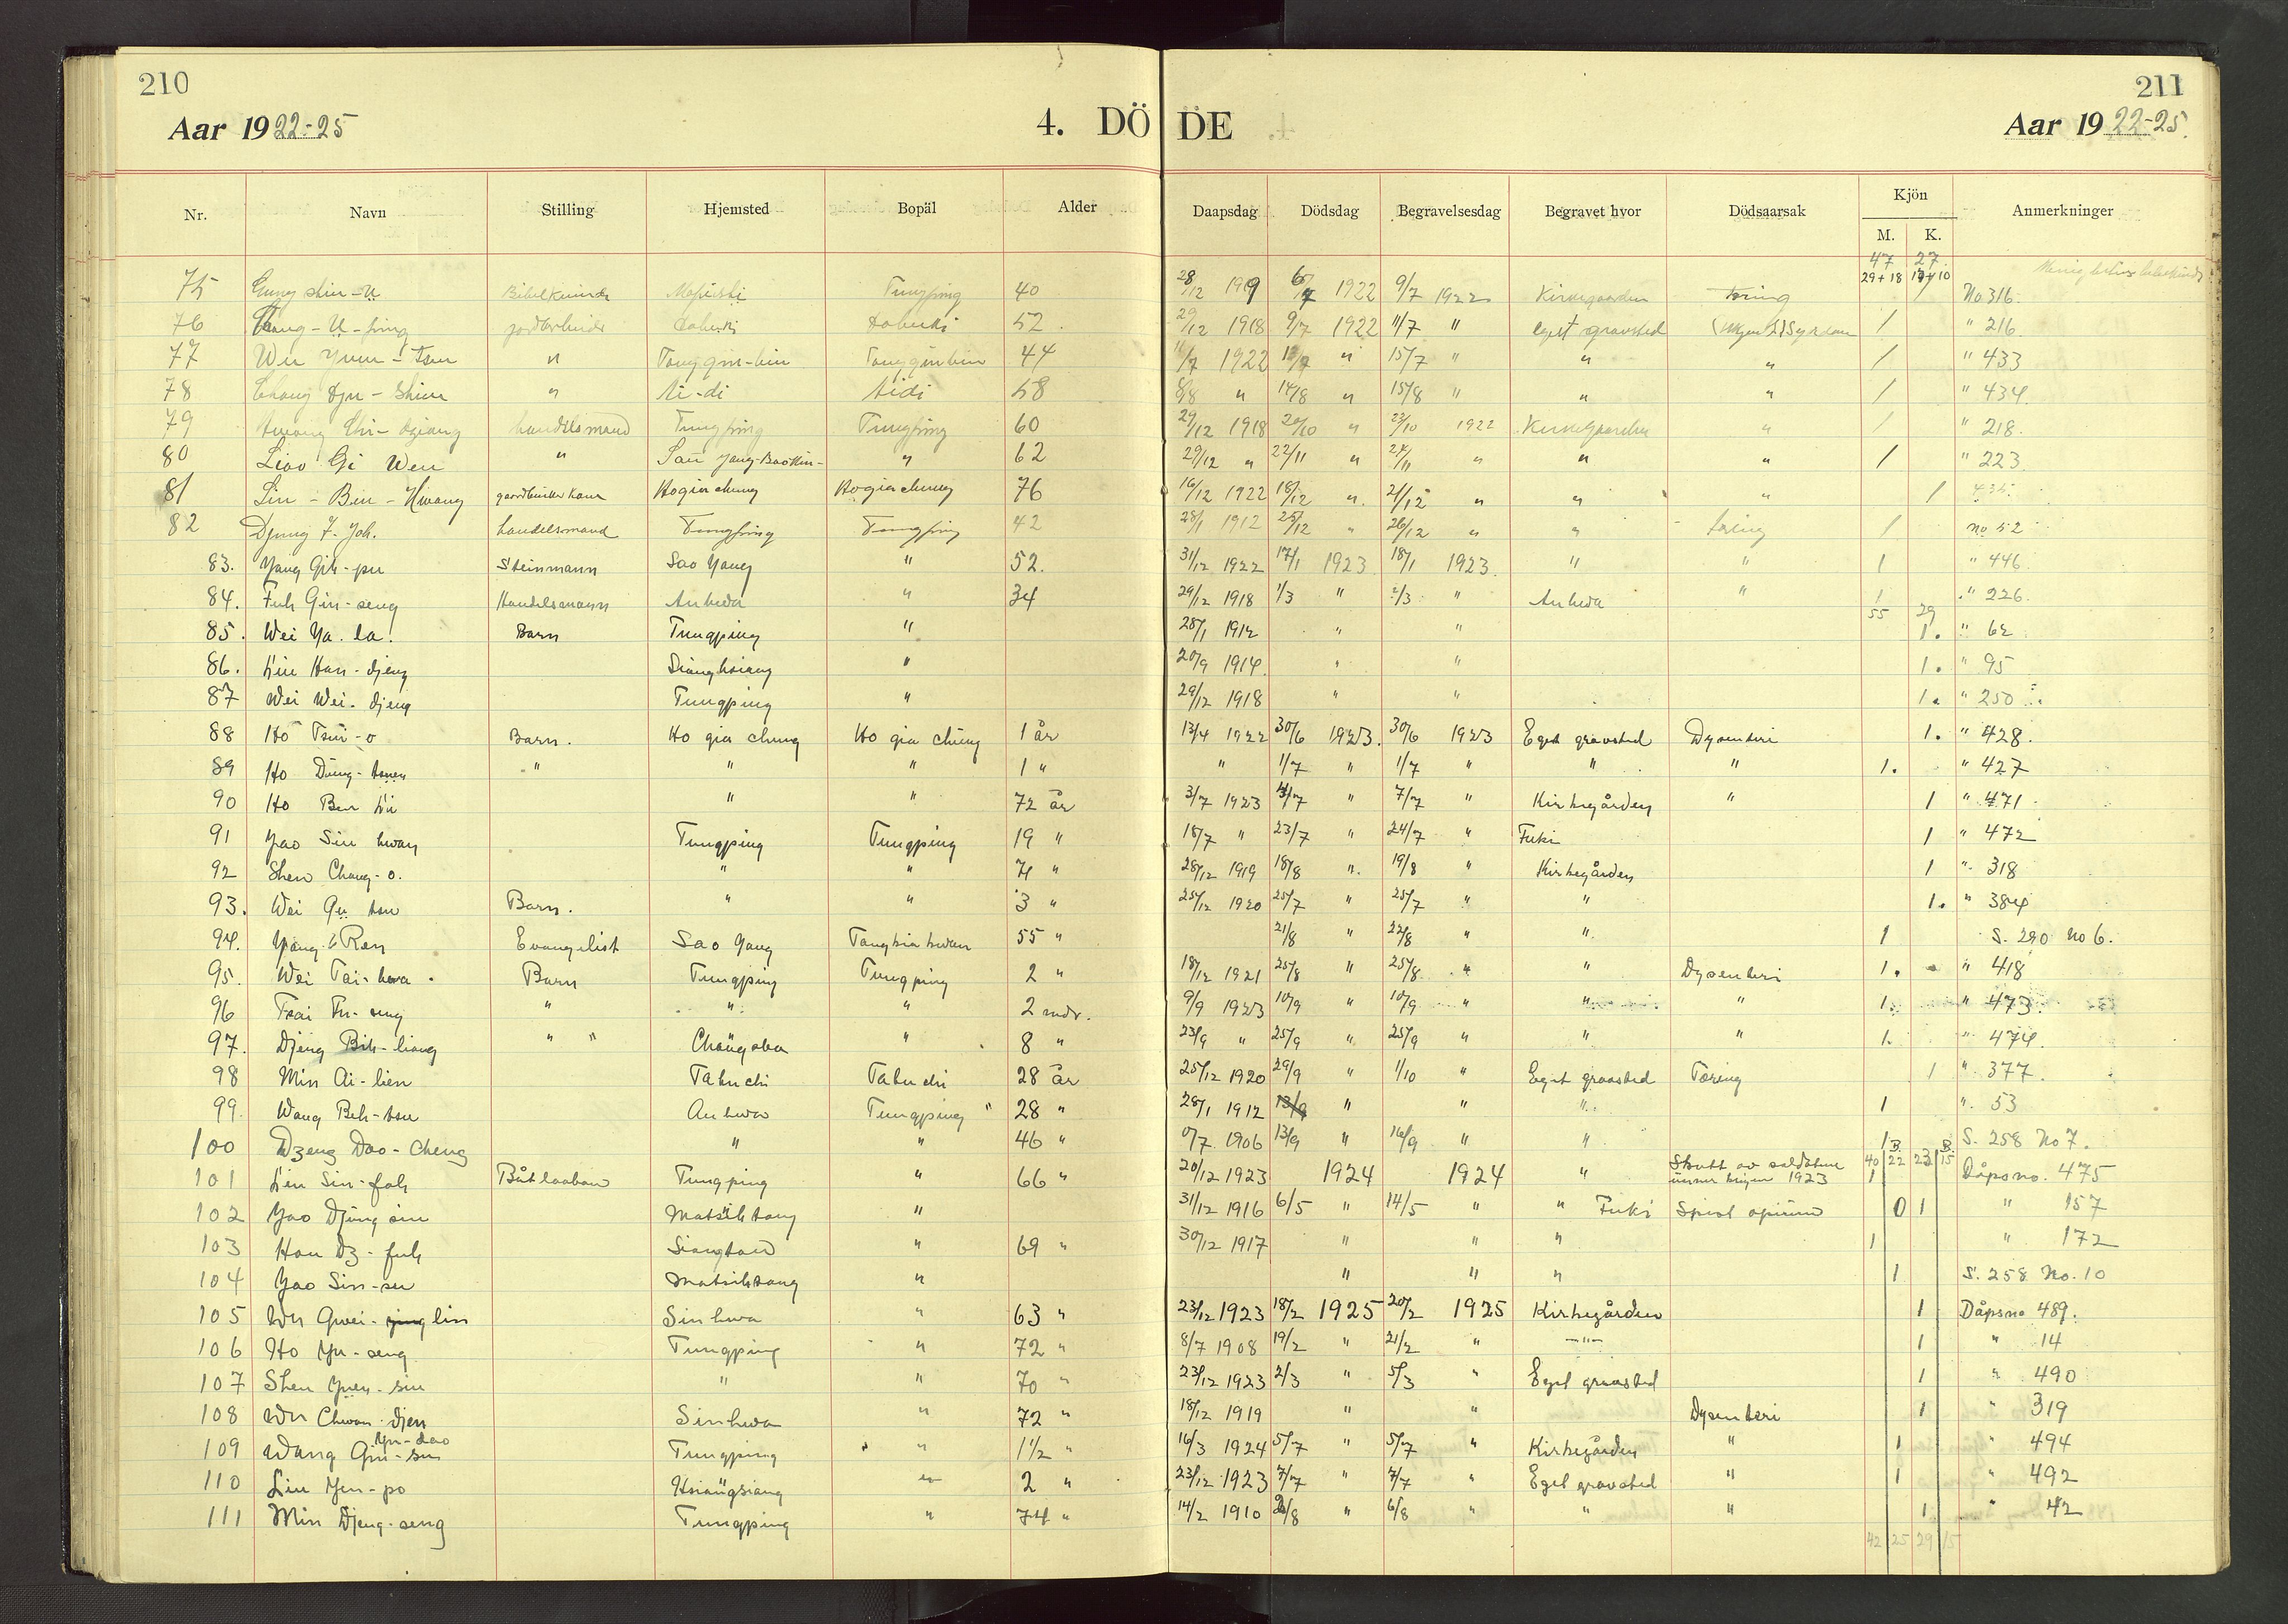 210
Aar 1922-25
4. DÖ DE
211
Aar 1922-25.
Nr. Navn Stilling Hjemsted Bopäl Alder Daapsdag Dödsdag Begravelsesdag Begravet hvor Dödsaarsak Kjön Anmerkninger
M. K.
47 27
29+18 17+10
75 Bibelkvinde Tungping 40 28/12 1919 1922 9/7 1922 Kirkegaarden Tæring No 316.
76 52. 29/12 1918 9/7 1922 11/7 " Eget gravsted 1 " 216
77 Wu " 44 1922 " 15/7 " " " 1 " 433
78 Chang " 58 " 14/8 " 15/8 " " " 1 " 434.
79 handelsmand Tungping Tungping 60 29/12 1918 20/10 " 23/10 1922 Kirkegaarden " 1 " 218.
80 Liao Gi Wen " " 62 29/12 " 22/11 " 24/11 " " " 1 " 223
81 Lin - Ben - Hwang Hogiachung Hogiachung 76 16/12 1922 18/12 " 21/12 " " " 1 435.
82 Djung F. Joh. handelsmand Tungping Tungping 42 28/1 1912 25/12 " 26/12 " " tæring 1 no 52
83. Yang Gih-pu Steinmann Sao Yang " 52. 31/12 1922 17/1 1923 18/1 1923. " " 1 " 446
84. Fuh Gin-seng Handelsmann Anhwa " 34 29/12 1918 1/3 " 2/3 " Anhwa " 1 " 226.
55 29
85. Wei Ya-la. Barn Tungping " 28/1 1912 " " 1. " 62
86. Liu Han-djeng Sianghsiang " 20/9 1914. " " 1. " 95
87 Wei Wei-djeng Tungping " 29/12 1918 " " 1. " 250
88 Ho Tsui-o Barn. Ho gia chung Ho gia chung 1 år 13/4 1922 30/6 1923. 30/6 1923 Eget gravsted Dysenteri 1. " 428.
89 Ho Dung- " " " 1 " " 1/7 " 1/7 " " " 1. " 427
90 Ho Ben Li " " 72 år 3/7 1923 " 7/7 " Kirkegården " 1 " 471.
91 Yao Siu hwan Tungping Tungping 19 " 18/7 " 23/7 " 24/7 " Fuki 1 " 472
92 Shen Chang-o. " " 74 " 28/12 1919 18/8 " 19/8 " Kirkegården 1 " 318
93. Wei Gu tsu Barn. " " 3 " 25/12 1920 25/7 " 25/7 " " 1. " 384
94. Yang Ren Evangelist Sao Yang 55 " 21/8 " 22/8 " " 1 S. 290 No 6.
95. Wei Tai-hwa. Barn Tungping Tungping 2 " 18/12 1921 25/8 " 25/8. " " Dysenteri 1. " 418
96 Tsai Fu-seng " " " 2 mdr. 9/9 1923 10/9 " 10/9 " " " 1. " 473.
97. Djeng Bih-liang " " " 8 " 23/9 " 25/9 " 25/9 " " " 1. " 474.
98 Min Ai-lien Tahuchi Tahuchi 28 år 25/12 1920 29/9 " 1/10 " Eget gravsted Tæring 1 " 377.
99. Wang Beh-tsu Anhwa Tungping " 28 " 28/1 1912 13/9 " " " 1 " 53
100 Dzeng Dao-Cheng " " 46 " 1906 13/9 " 16/9 " " 1 S. 258 No 7.
40 B. 22 23 B. 15
101 Liu Sin-fah Båtlaoban Tungping " 66 " 20/12 1923 1924 1924 " Skutt av soldatene under krigen 1923 1 Dåpsno. 475
102 Yao Djung sin Matsihtang " 31/12 1916 6/5 " 14/5 " " Fuki Spist opium 0 1 " 157
103 Hou Dz-fuh Siangtan " 69 " 30/12 1917 " " " 1 " 172
104 Yao Sin-su Matsihtang " " " " 1 S. 258 No. 10
105 Wu Gwei-lin Sinhwa " 63 " 23/12 1923 18/2 1925 20/2 1925 Kirkegården 1 Dåpsno 489.
106 Ho Yu-seng Tungping " 72 " 8/7 1908 19/2 " 21/2 " -"- 1 " 14
107 Shen Yuen-siu " " 70 " 23/12 1923 2/3 " 5/3 " Eget gravsted 1 " 490
108 Wu Chwan-djen Sinhwa " 72 " 18/12 1919 " " Dysenteri 1 " 319
Yu-dao
109 Wang Giu-sun Tungping " 1 1/2 " 16/3 1924 5/7 " 5/7 " Kirkegården " 1 " 494
110 Liu Yen-po Hsiangsiang " 2 " 23/12 1923 7/7 " 7/7 " Eget gravsted " 1 " 492
111 Min Djeng-seng Tungping " 74 " 14/2 1910 " 6/8 " " " 1 " 42
42 25 29 15